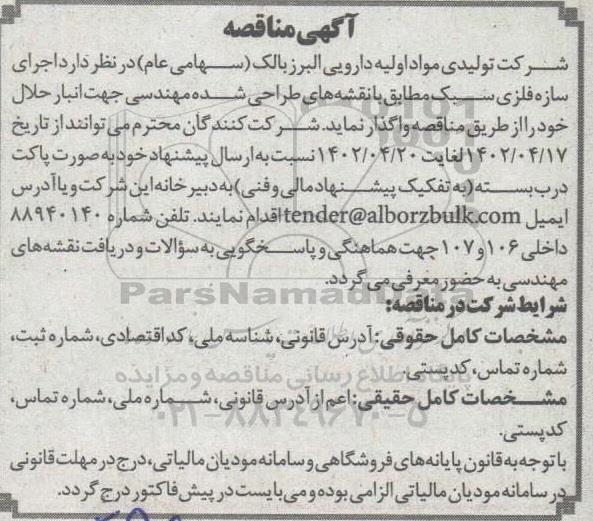 آگهی مناقصه
شرکت تولیدی مواد اولیه دارویی البرز بالک (سهامی عام) در نظر دارد اجرای
سازه فلزی سبک مطابق با نقشه های طراحی شده مهندسی جهت انبار حلال
خود را از طریق مناقصه واگذار نماید. شرکت کنندگان محترم می توانند از تاریخ
۱۴۰۲/۰۴/۱۷ لغایت ۱۴۰۲/۰۴/۲۰ نسبت به ارسال پیشنهاد خود به صورت پاکت
درب بسته (به تفکیک پیشنهاد مالی و فنی) به دبیرخانه این شرکت و یا آدرس
ایمیل tender@alborzbulk.com اقدام نمایند. تلفن شماره ۸۸۹۴۰۱۴۰
داخلی ۱۰۶ و ۱۰۷ جهت هماهنگی و پاسخگویی به سؤالات و دریافت نقشه های
مهندسی به حضور معرفی می گردد.
ParsNamadData
شرایط شرکت در مناقصه:
مشخصات کامل حقوقی: آدرس قانونی، شناسه ملی، کد اقتصادی، شماره ثبت،
شماره تماس، کدپستی.
پایگاه اطلاع رسانی مناقصه و مزایده
مشخصات کامل حقیقی: اعم از آدرس قانونی، شماره ملی، شماره تماس،
۰۲۱-۸۸۳۴۹۶۷۰-۵
کدپستی.
با توجه به قانون پایانه های فروشگاهی و سامانه مودیان مالیاتی، درج در مهلت قانونی
در سامانه مودیان مالیاتی الزامی بوده و می بایست در پیش فاکتور درج گردد.